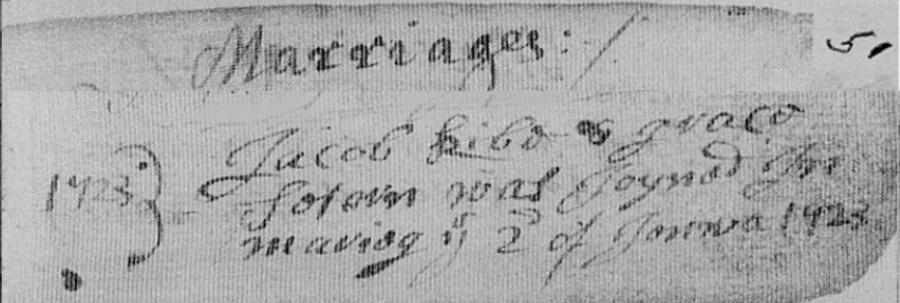 Marriages: /
5,
1723 Jacob kibe & grace
was Joyned In
mariag ye 2d of Janua 1723